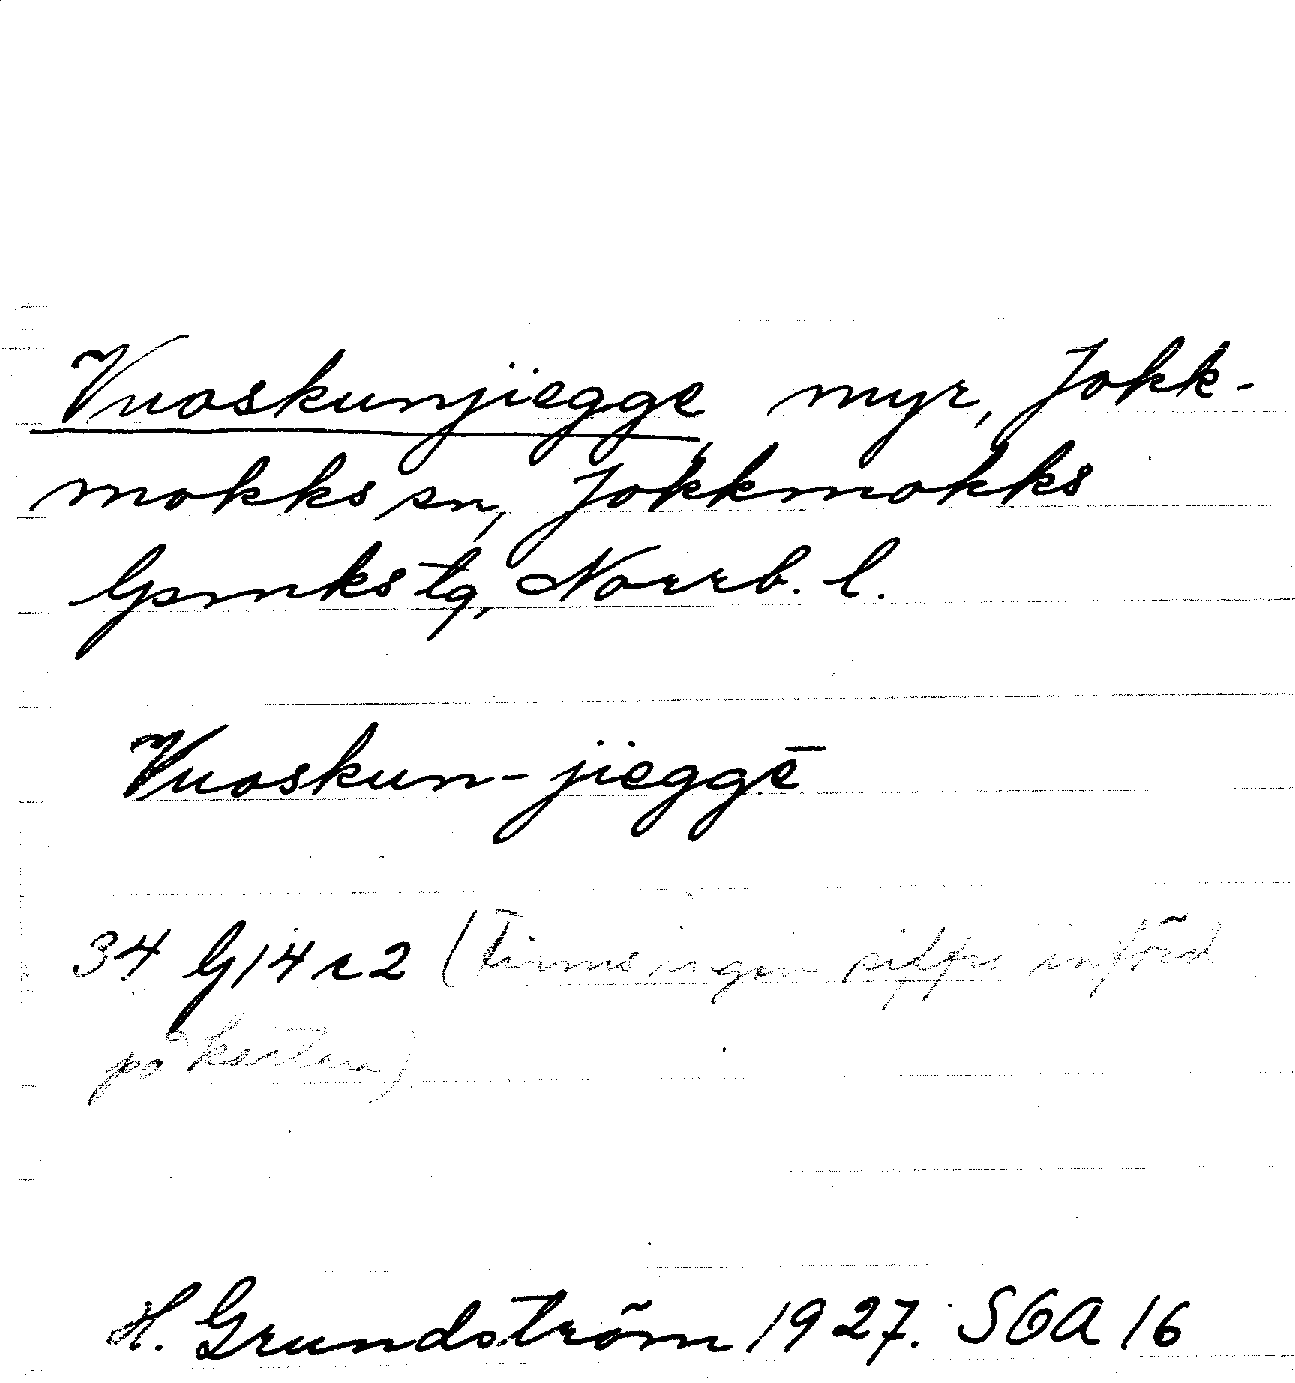 Vuoskunjiegge, myr, Jokk-
mokks sn, Jokkmokks
lpmks tg, Norrb. l.
Vuoskun-jieggē
34 G14 c2 (Finns ingen siffra införd
på kartan)
H. Grundström 1927. SGA 16